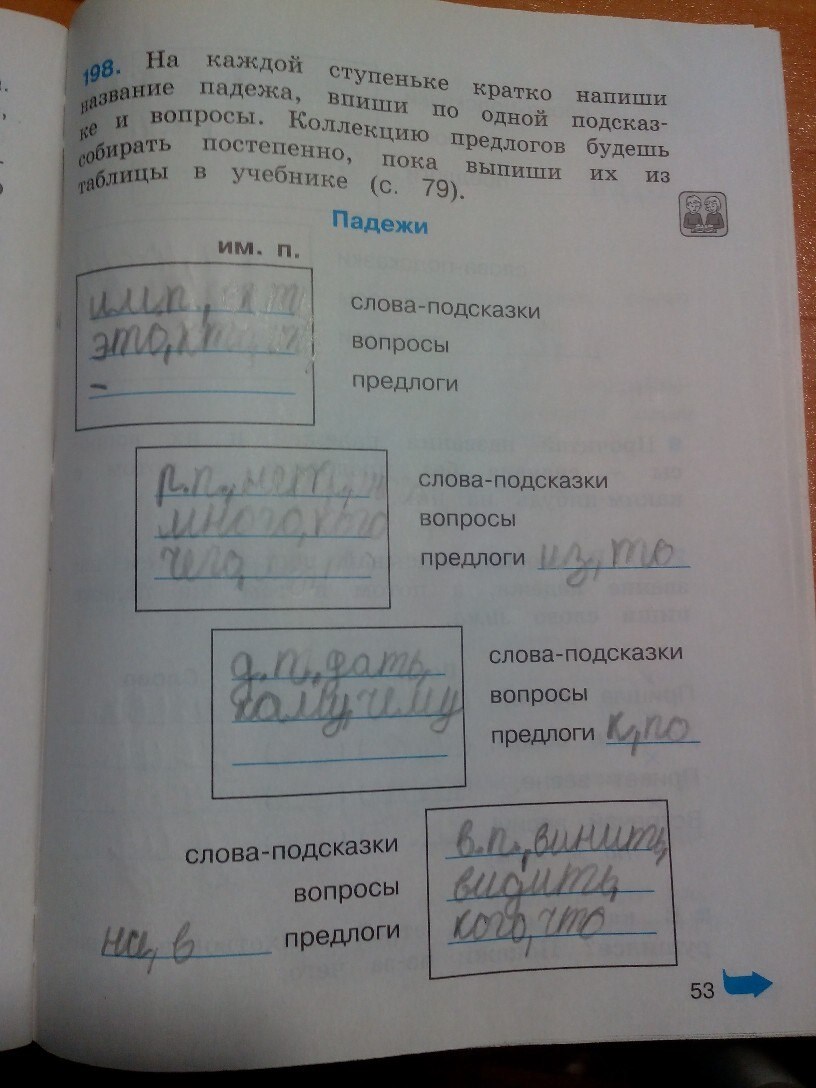 198. На каждой ступеньке кратко напиши
название падежа, впиши по одной подсказ-
ке и вопросы. Коллекцию предлогов будешь
собирать постепенно, пока выпиши их из
таблицы в учебнике (с. 79).
Падежи
им. п.
им.п.,
слова-подсказки
это, кто,
вопросы
-
предлоги
р.п., нет,
слова-подсказки
много, кого
вопросы
чего,
предлоги из,
д.п., дать,
слова-подсказки
кому, чему
вопросы
предлоги к, по
слова-подсказки
в.п., винить,
вопросы
видить,
на, в предлоги
кого, что
53